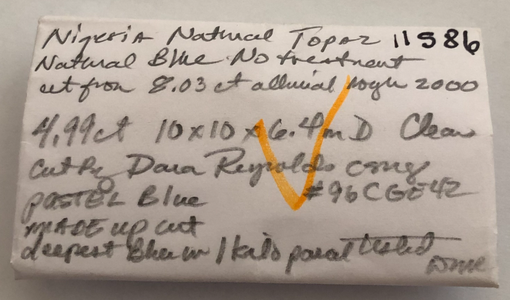 Nigeria Natural Topaz 11586
Natural Blue No treatment
cut from 8.03 ct alluvial rough 2000
4.99ct 10x10x6.4m D Clean
cut By Dara Reynolds
PASTEL Blue #96CGE42
MADE up cut
deepest Blue in 1 kilo parcel tested